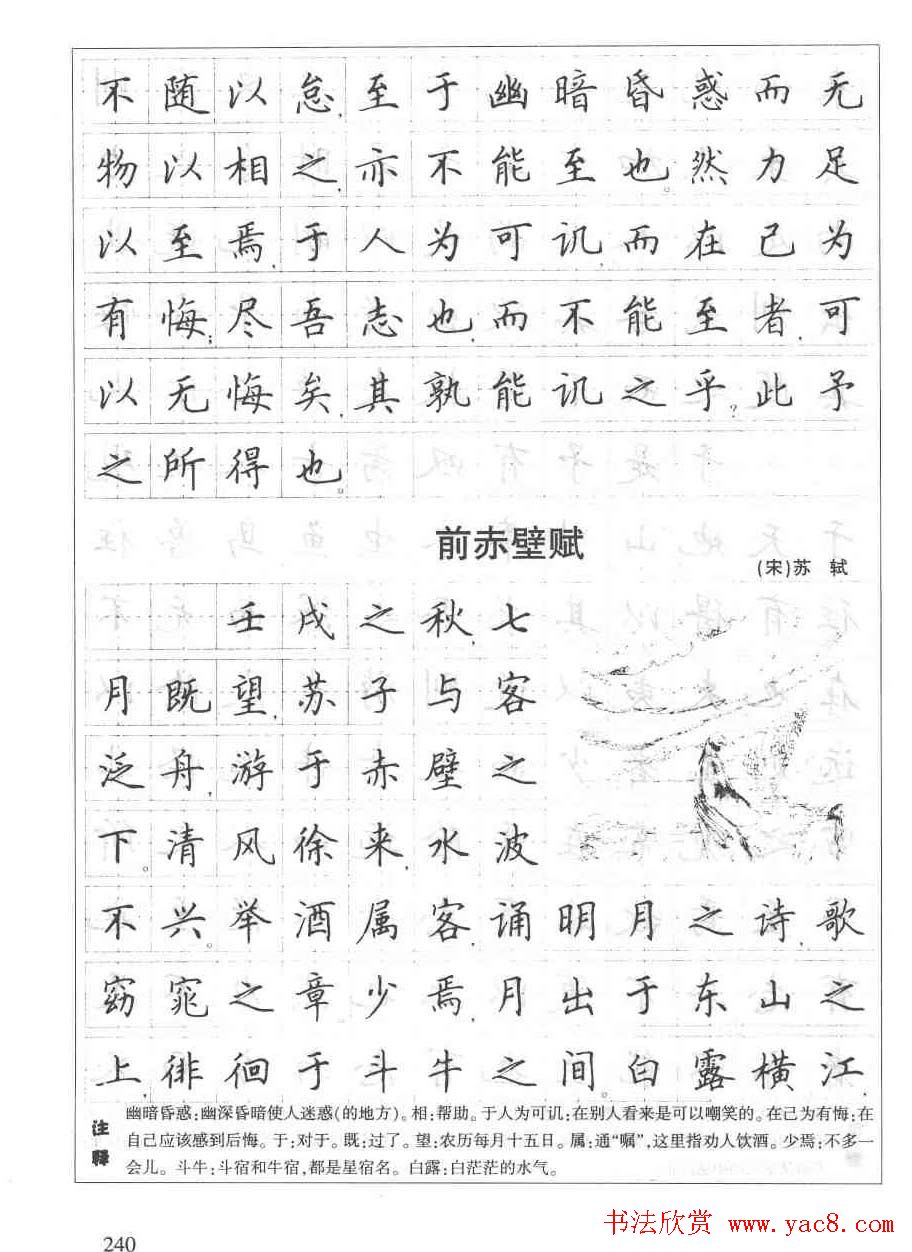 不随以怠,至于幽暗昏惑而无
物以相之,亦不能至也。然力足
以至焉,于人为可讥,而在己为
有悔;尽吾志也,而不能至者,可
以无悔矣,其孰能讥之乎?此予
之所得也。
前赤壁赋
(宋)苏 轼
壬戌之秋,七
月既望,苏子与客
泛舟,游于赤壁之
下。清风徐来,水波
不兴。举酒属客,诵明月之诗,歌
窈窕之章。少焉,月出于东山之
上,徘徊于斗牛之间。白露横江,
注释
幽暗昏惑:幽深昏暗使人迷惑(的地方)。相:帮助。于人为可讥:在别人看来是可以嘲笑的。在己为有悔:在
自己应该感到后悔。于:对于。既:过了。望:农历每月十五日。属:通“嘱”,这里指劝人饮酒。少焉:不多一
会儿。斗牛:斗宿和牛宿,都是星宿名。白露:白茫茫的水气。
书法欣赏 www.yac8.com
240